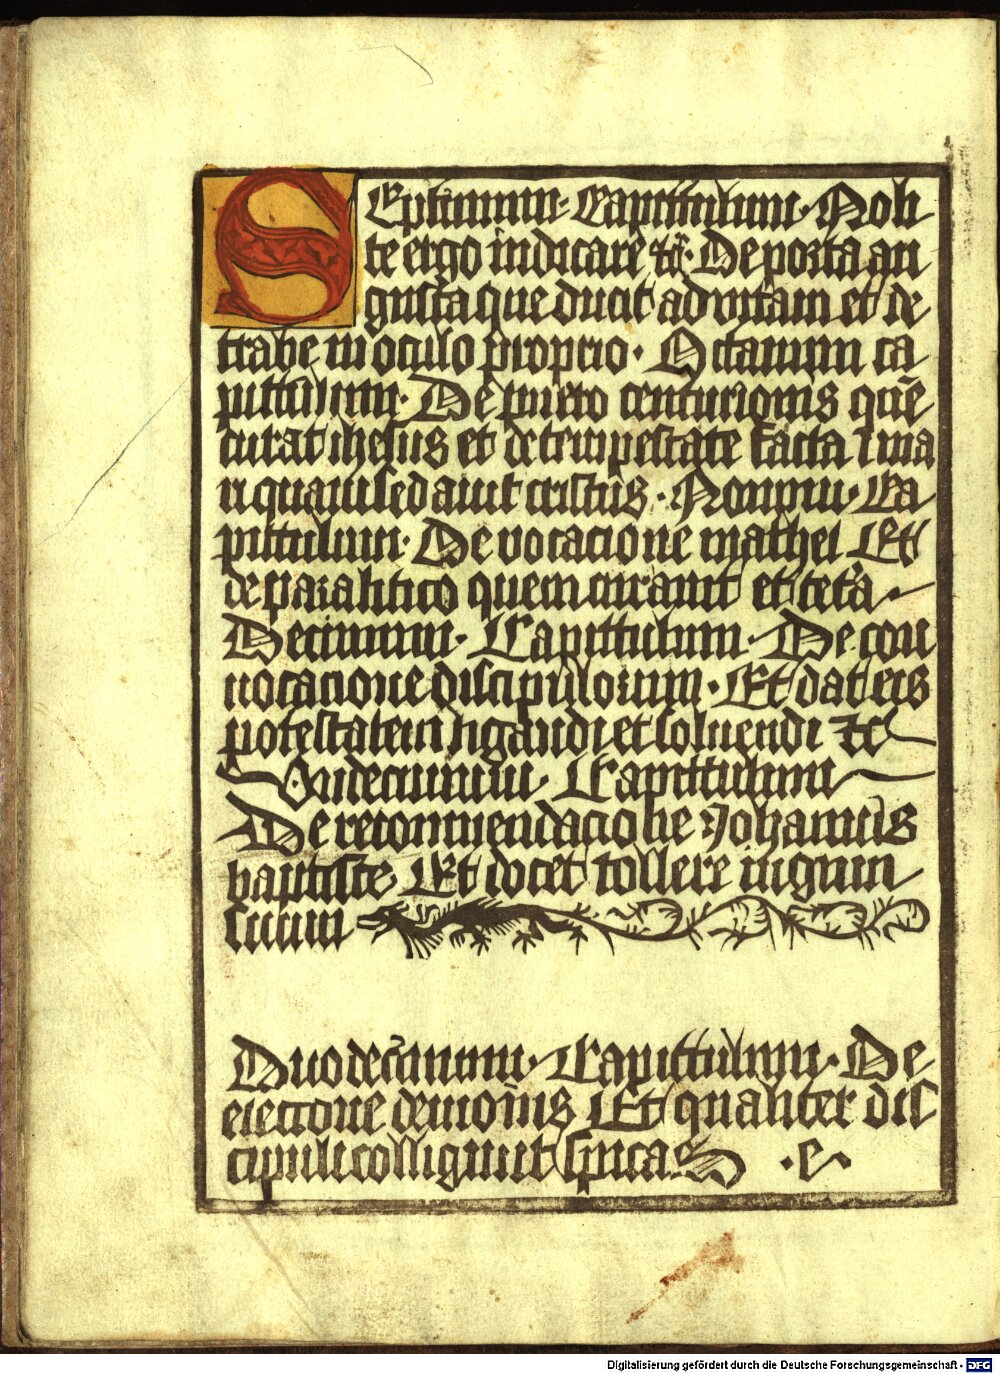 SEptimum· Capittulum· Noli
te ergo iudicare etc̄· De porta an
gusta que ducit ad vitam et de
trabe in oculo proprio· Octauum ca
pittulum· De puero centurionis quē
curat ihesus et de tempestate facta ī ma
ri quam sedauit cristus· Nonum· Ca
pittulum· De vocacione mathei Et
de paralitico quem curauit et cetā
Decimum· Capittulum· De con
uocacione discipulorum· Et dat eis
potestatem ligandi et soluendi etc̄
Vndecimum· Capittulum
De recommendacione Johannis
baptiste Et docet tollere iugum
suum
Duodecimum· Capittulum· De
eiectione demonis Et qualiter dis
cipuli colligunt spicas ·e·
Digitalisierung gefördert durch die Deutsche Forschungsgemeinschaft - DFG